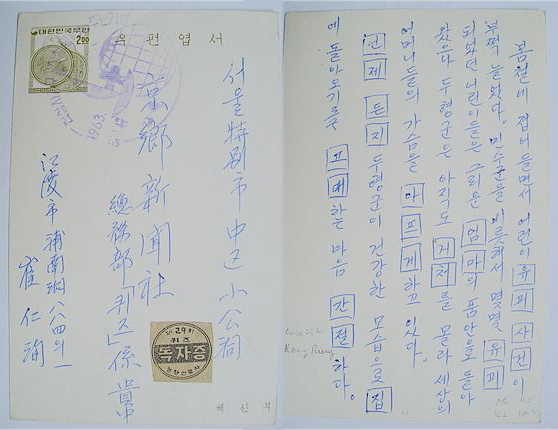 대한민국우편
2.00
우편엽서
1963.
서울特別市 中区 小公洞
京鄕新聞社
總務部「퀴즈」係 貴中
江陵市 浦南洞
崔仁
29회
퀴즈
독자증
경향신문사
체신부
봄철에 접어들면서 어린이 유괴사건이
부쩍 늘었다. 민수군을 비롯해서 몇몇 유괴
되었던 어린이들은 그리운 엄마의 품안으로 돌아
왔으나 두형군은 아직도 거처를 몰라 세상의
어머니들의 가슴을 아프게 하고 있다.
언제든지 두형군이 건강한 모습으로 집
에 돌아오기를 고대하는 마음 간절하다.